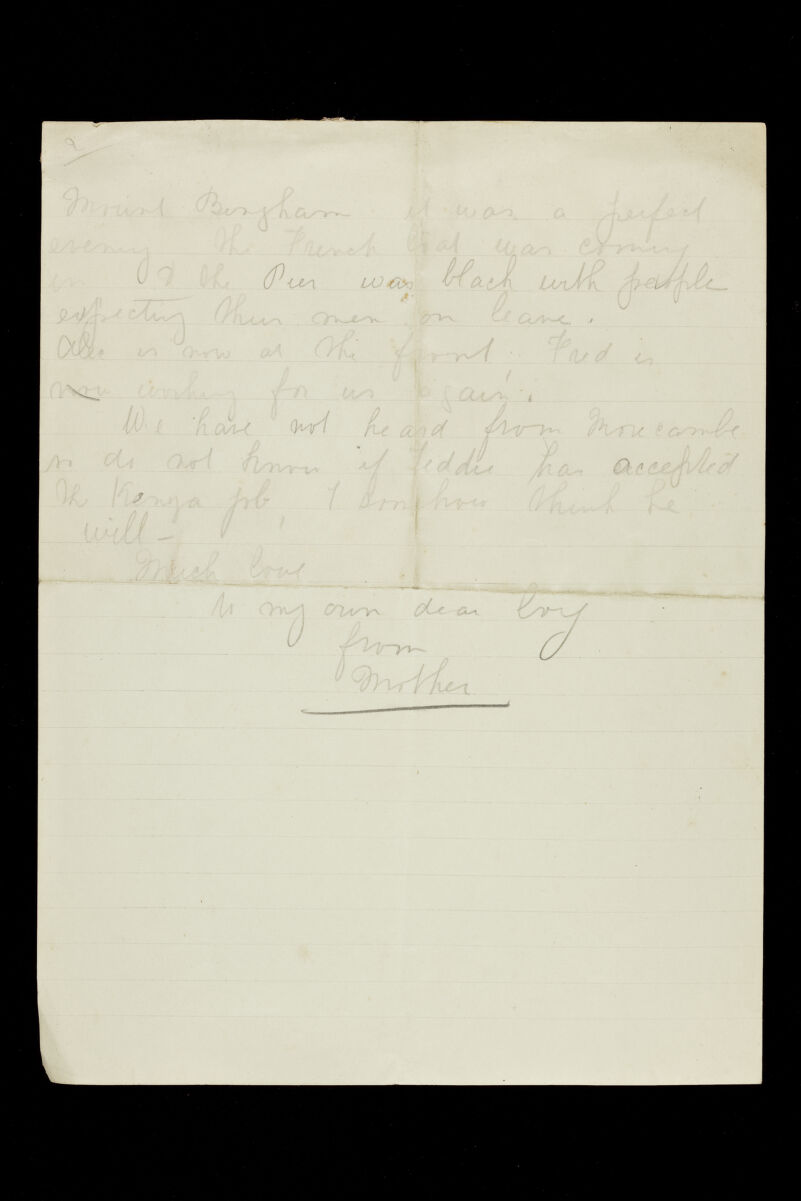 2
Mount Bingham it was a perfect
evening the French boat was coming
in & the Pier was black with people
expecting their men on leave.
Alec is now at the front, Fred is
now working for us again.
We have not heard from Morecambe
so do not know if Teddie has accepted
the Kenya job, I somehow think he
will -
Much love
to my own dear boy
from
Mother